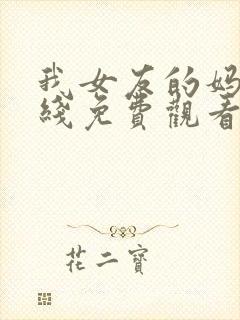 我女友的妈
綫免費觀看
花二寶